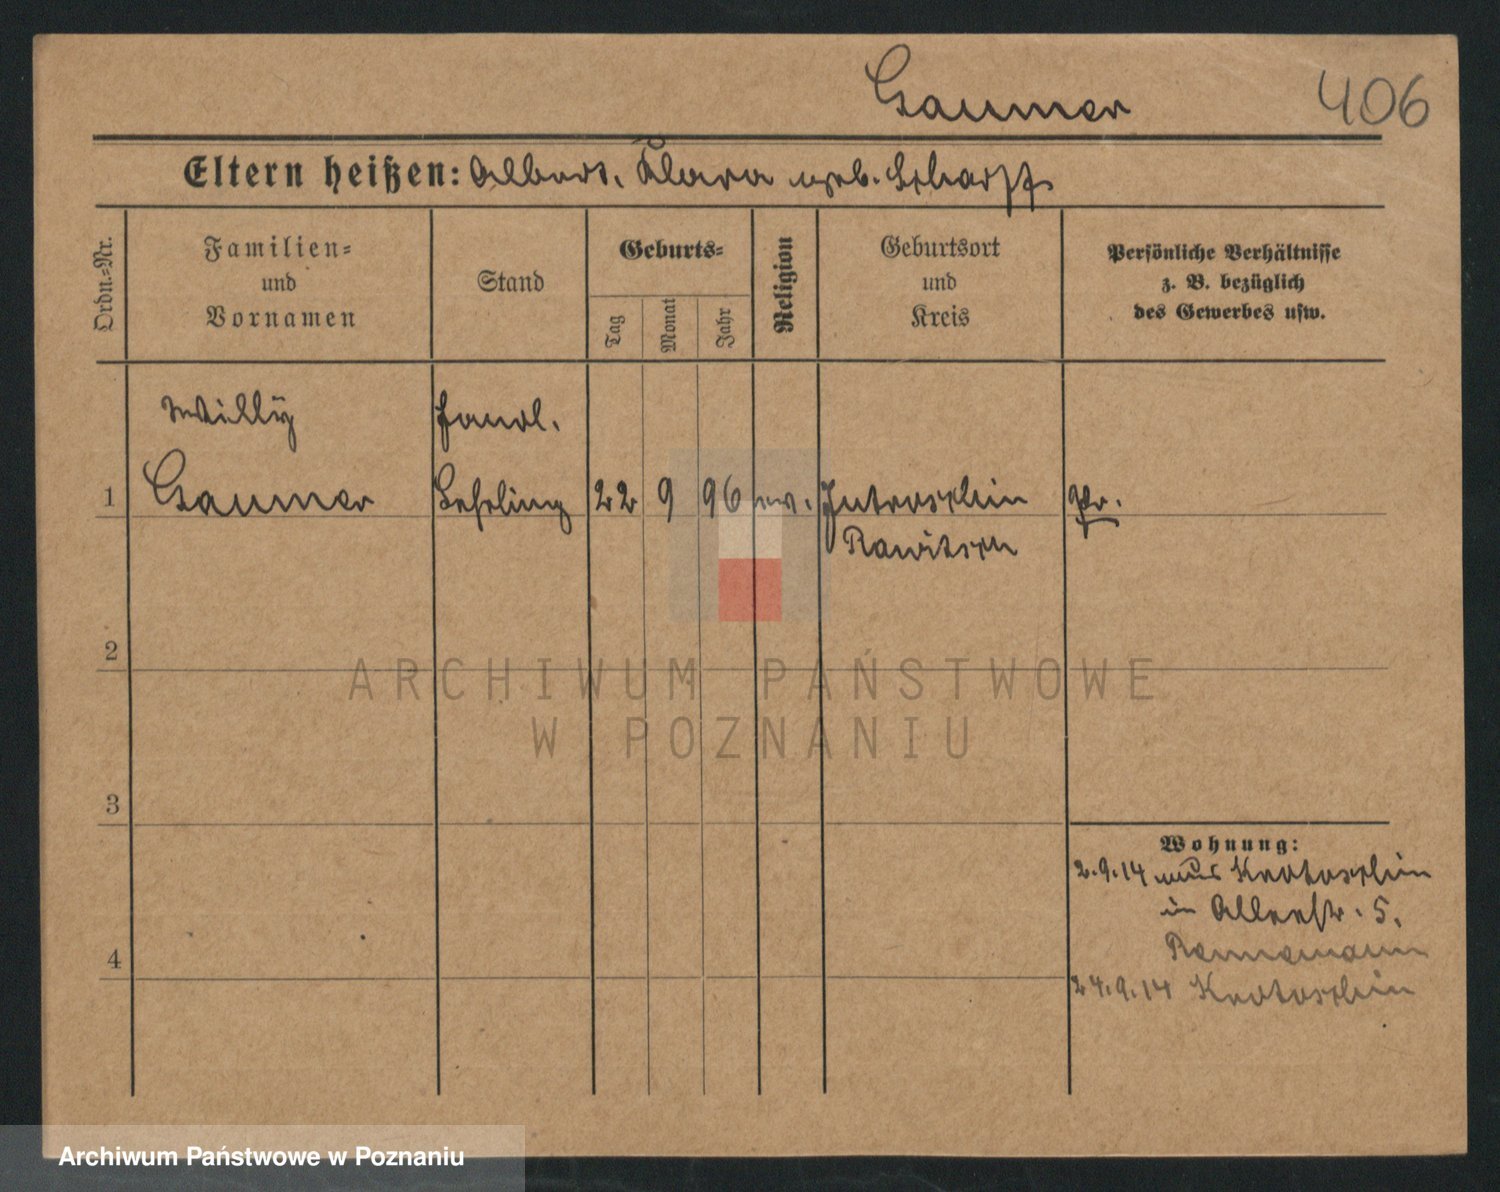 Gaumer 406
Eltern heißen: Albert, Klara geb. Scharff
Ordn.-Nr.
Familien-
und
Vornamen
Stand
Geburts-
Tag
Monat
Jahr
Religion
Geburtsort
und
Kreis
Persönliche Verhältnisse
z. B. bezüglich
des Gewerbes usw.
Willy Handl.
1 Gaumer Lehrling 22 9 96 ev. Jutroschin Pr.
Rawitsch
2
ARCHIWUM PAŃSTWOWE
W POZNANIU
3
Wohnung:
2.9.14 aus Krotoschin
in Alleestr. 5.
4
24.9.14 Krotoschin
Archiwum Państwowe w Poznaniu